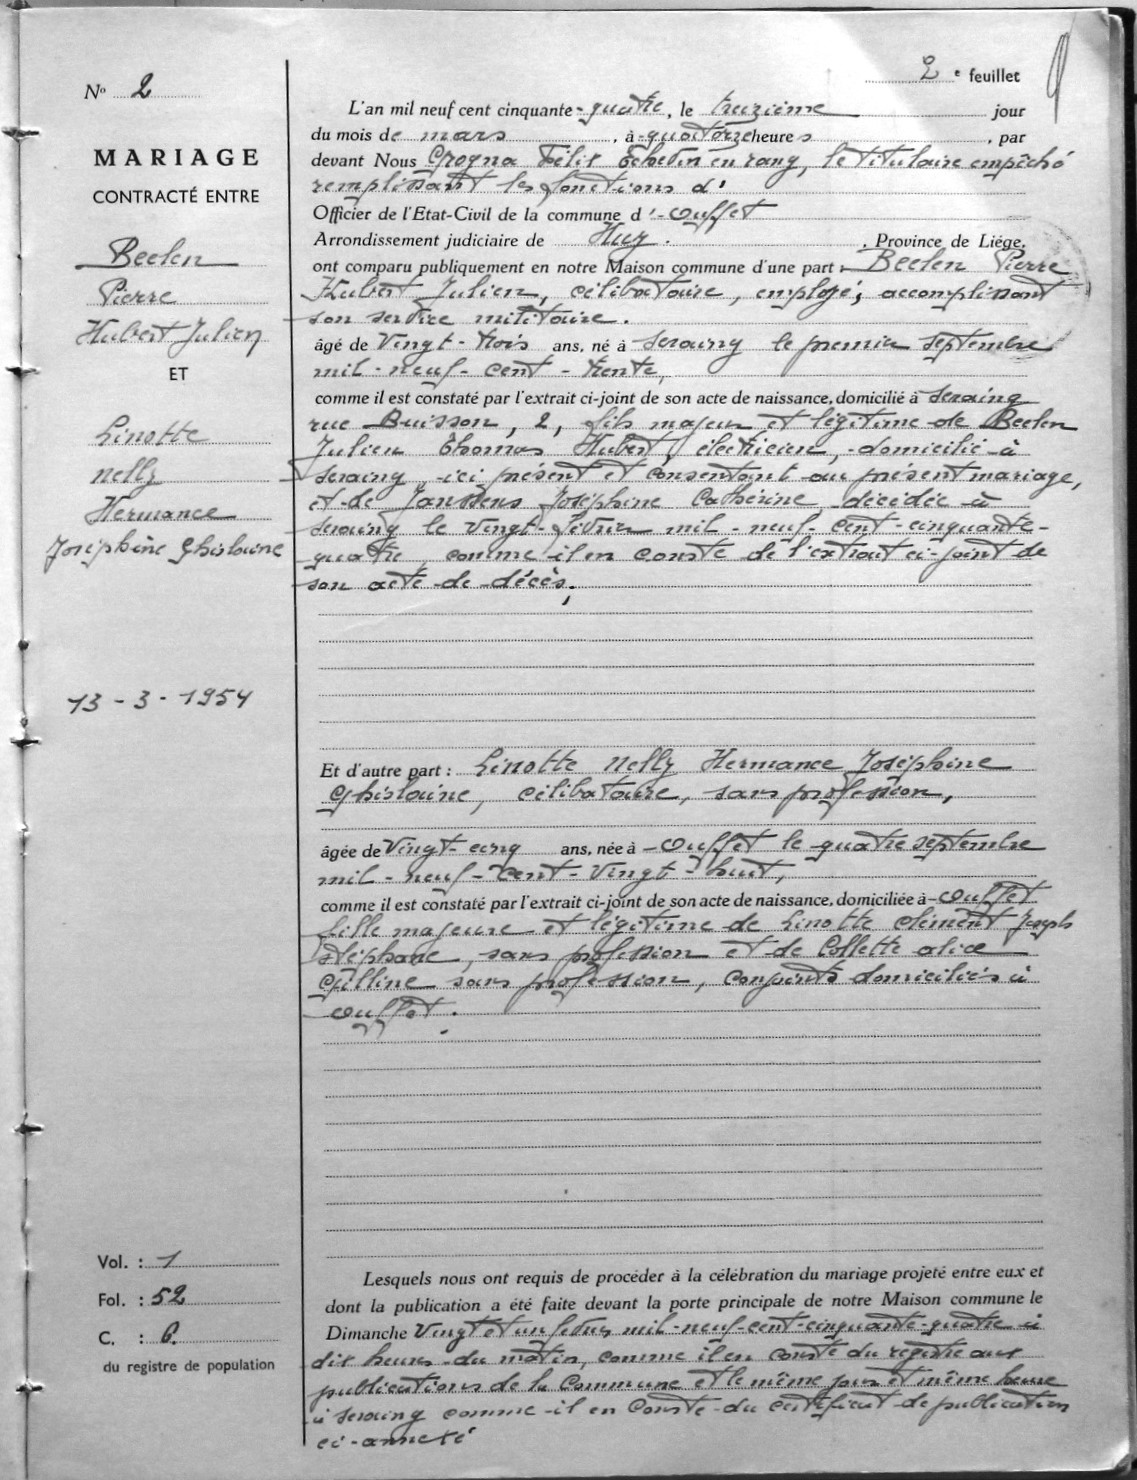 2 e feuillet
No 2
MARIAGE
CONTRACTÉ ENTRE
Beelen
Pierre
Hubert Julien
ET
Linotte
Nelly
Hermance
Joséphine Ghislaine
13 - 3 - 1954
Vol. : 1
Fol. : 52
C. : 6.
du registre de population
L'an mil neuf cent cinquante-quatre, le treizième jour
du mois de mars, à quatorze heures, par
devant Nous Grogna Félix Echevin en rang, le titulaire empêché
remplissant les fonctions d'
Officier de l'Etat-Civil de la commune d'-Ouffet
Arrondissement judiciaire de Huy. , Province de Liége,
ont comparu publiquement en notre Maison commune d'une part : Beelen Pierre
Hubert Julien, célibataire, employé, accomplissant
son service militaire.
âgé de Vingt-trois ans, né à Seraing le premier septembre
mil-neuf-cent-trente,
comme il est constaté par l'extrait ci-joint de son acte de naissance, domicilié à Seraing
rue Buisson, 2, fils majeur et légitime de Beelen
Julien Thomas Hubert, électricien, domicilié à
Seraing, ici présent et consentant au présent mariage,
et de Janssens Joséphine Catherine décédée à
Seraing le vingt-février mil-neuf-cent-cinquante-
quatre, comme il en conste de l'extrait ci-joint de
son acte de décès;
Et d'autre part : Linotte Nelly Hermance Joséphine
Ghislaine, célibataire, sans profession,
âgée de Vingt-cinq ans, née à -Ouffet le quatre septembre
mil-neuf-cent-vingt-huit,
comme il est constaté par l'extrait ci-joint de son acte de naissance, domiciliée à -Ouffet
fille majeure et légitime de Linotte Clément Joseph
Stéphane, sans profession et de Collette Alice
sans profession, conjoints domiciliés à
Ouffet.
Lesquels nous ont requis de procéder à la célébration du mariage projeté entre eux et
dont la publication a été faite devant la porte principale de notre Maison commune le
Dimanche Vingt et un février mil-neuf-cent-cinquante-quatre à
dix heures du matin, comme il en conste du registre aux
publications de la Commune et le même jour et même heure
à Seraing comme il en conste du certificat de publication
ci-annexé